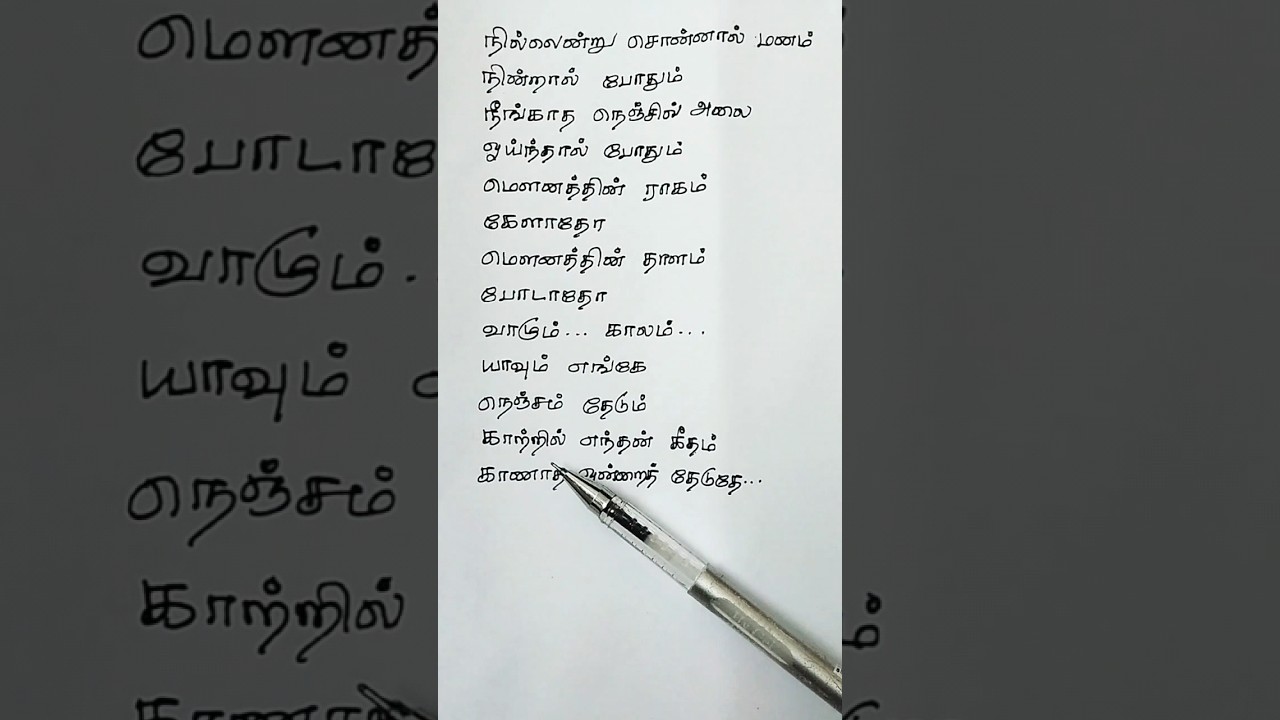 நில்லென்று சொன்னால் மனம்
நின்றால் போதும்
நீங்காத நெஞ்சில் அலை
ஓய்ந்தால் போதும்
மௌனத்தின் ராகம்
கேளாதோ
மௌனத்தின் தாளம்
போடாதோ
வாடும்... காலம்...
யாவும் எங்கே
நெஞ்சம் தேடும்
காற்றில் எந்தன் கீதம்
காணாத ஒன்றைத் தேடுதே...